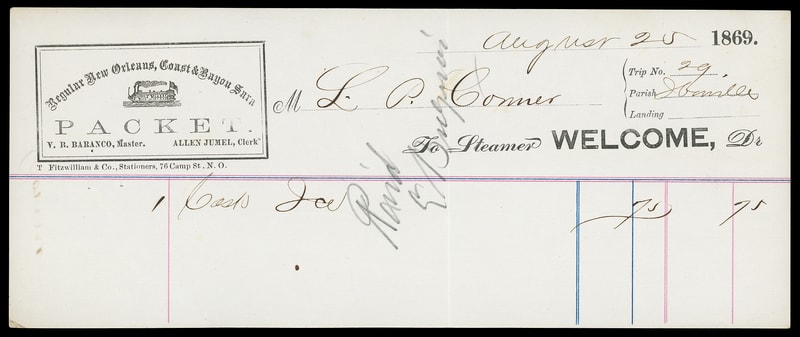 August 25 1869.
Regular New Orleans, Coast & Bayou Sara
PACKET.
V. B. BARANCO, Master. ALLEN JUMEL, Clerk
T Fitzwilliam & Co., Stationers, 76 Camp St. N. O.
M L. P. Conner
Trip No. 29
Parish
Landing
To Steamer WELCOME, Dr
1 Cask Ice 75 75
Paid